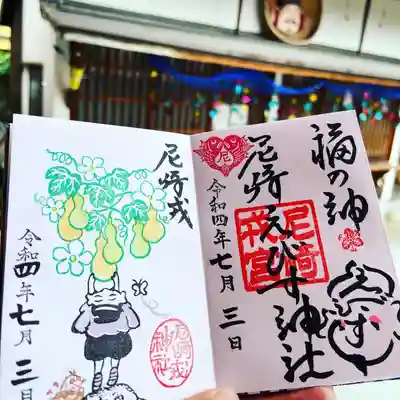 福の神
尼崎えびす神社
尼崎戎宮
尼
令和四年七月三日
えびす
尼崎戎
尼崎戎神社
令和四年七月三日